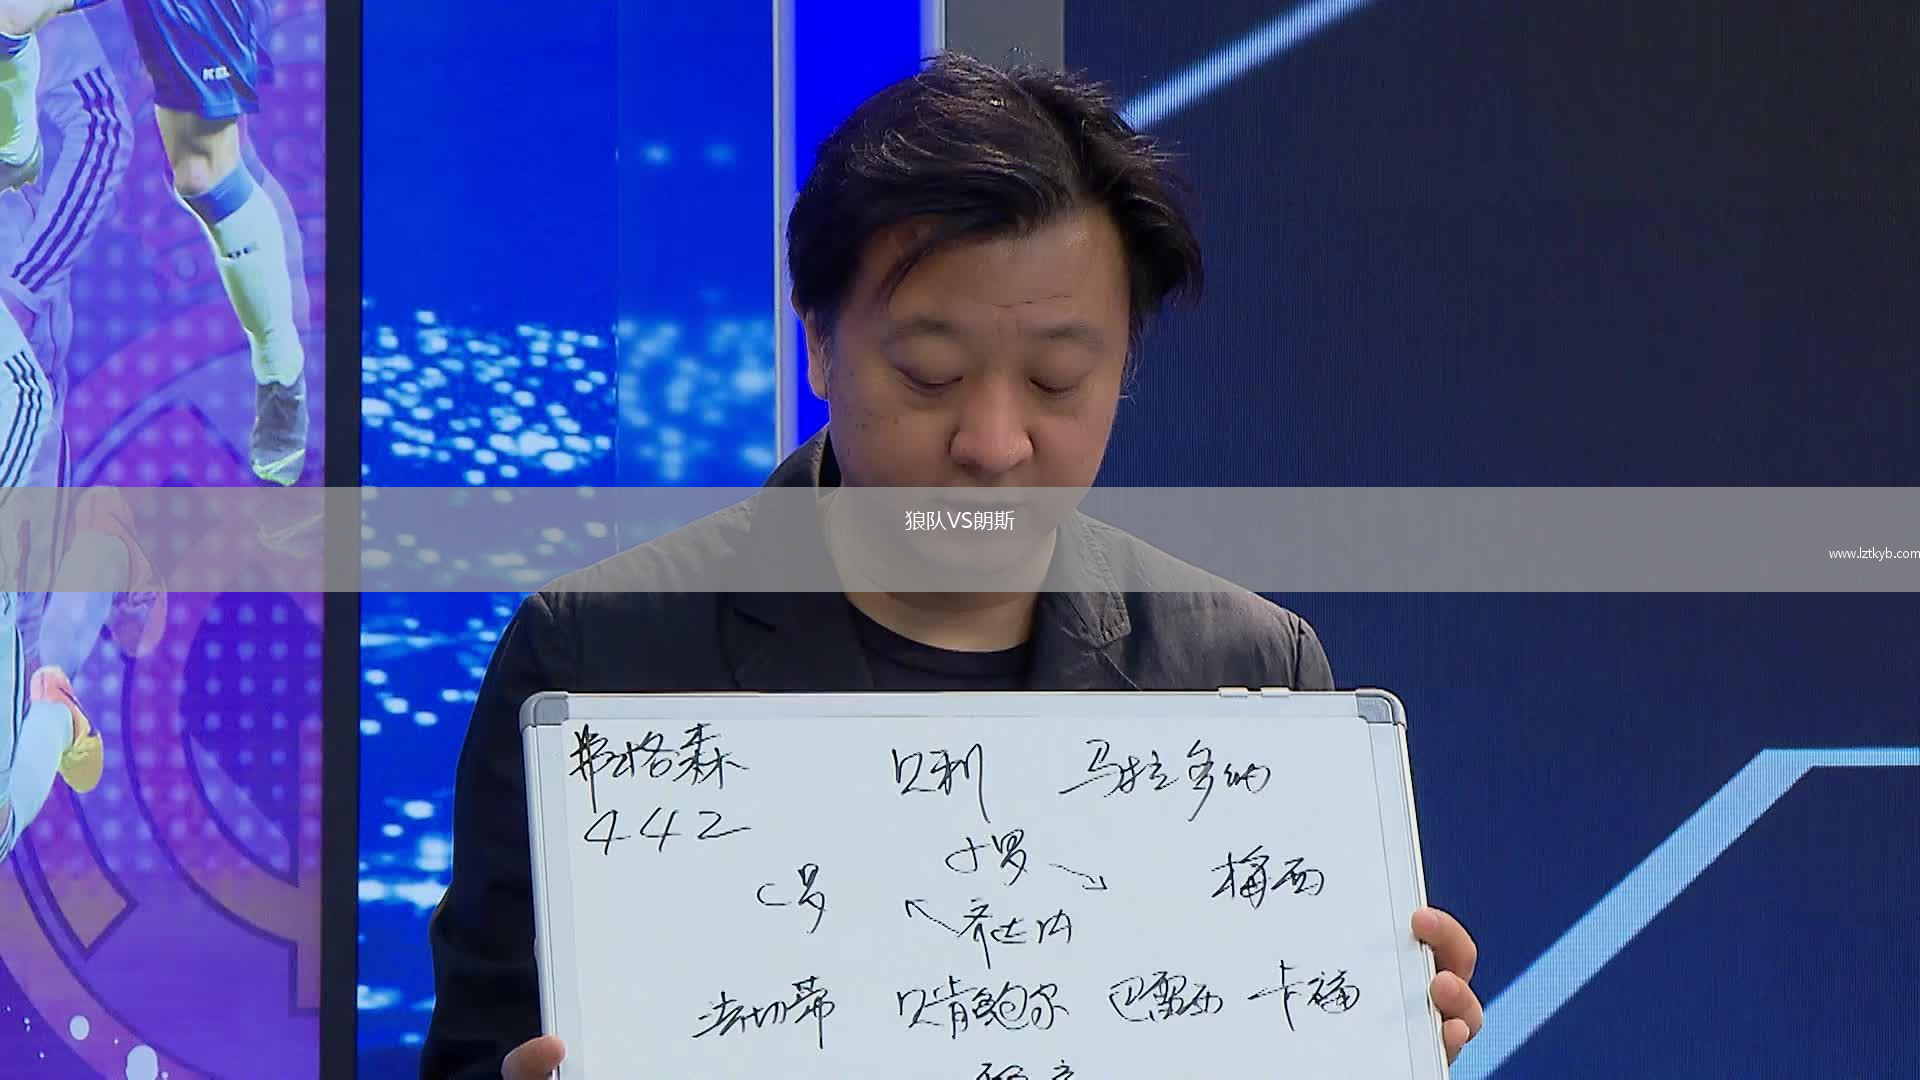 狼队VS朗斯
www.lztkyb.com
弗格森 贝利 马拉多纳
442
小罗
C罗 梅西
齐达内
法切蒂 贝肯鲍尔 巴雷西 卡福